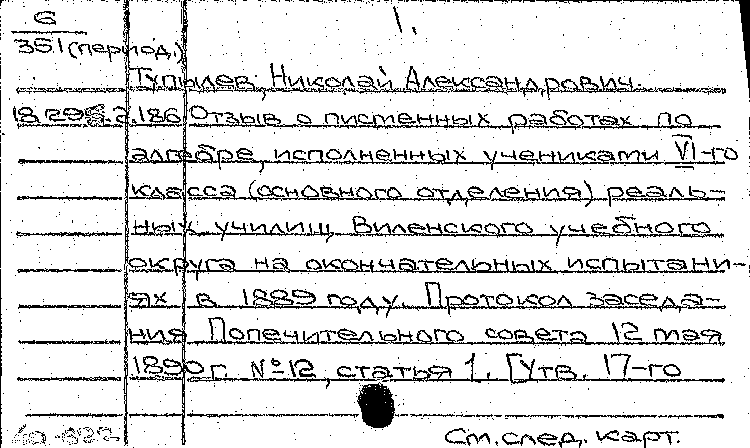 G 1.
351 (период.)
Тупылев, Николай Александрович.
2.186 Отзыв о писменных работах по
алгебре, исполненных учениками VI-го
класса (основного отделения) реаль-
ных училищ Виленского учебного
округа на окончательных испытани-
ях в 1889 году. Протокол заседа-
ния Попечительного совета 12 мая
1890 г. № 12, статья 1. [Утв. 17-го
См. след. карт.